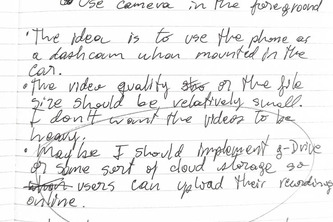 Use camera in the foreground
• The idea is to use the phone as
a dashcam when mounted in the
car.
• The video quality or the file
size should be relatively small.
I don't want the videos to be
heavy.
• Maybe I should implement g-Drive
or some sort of cloud storage so
users can upload their recordings
online.